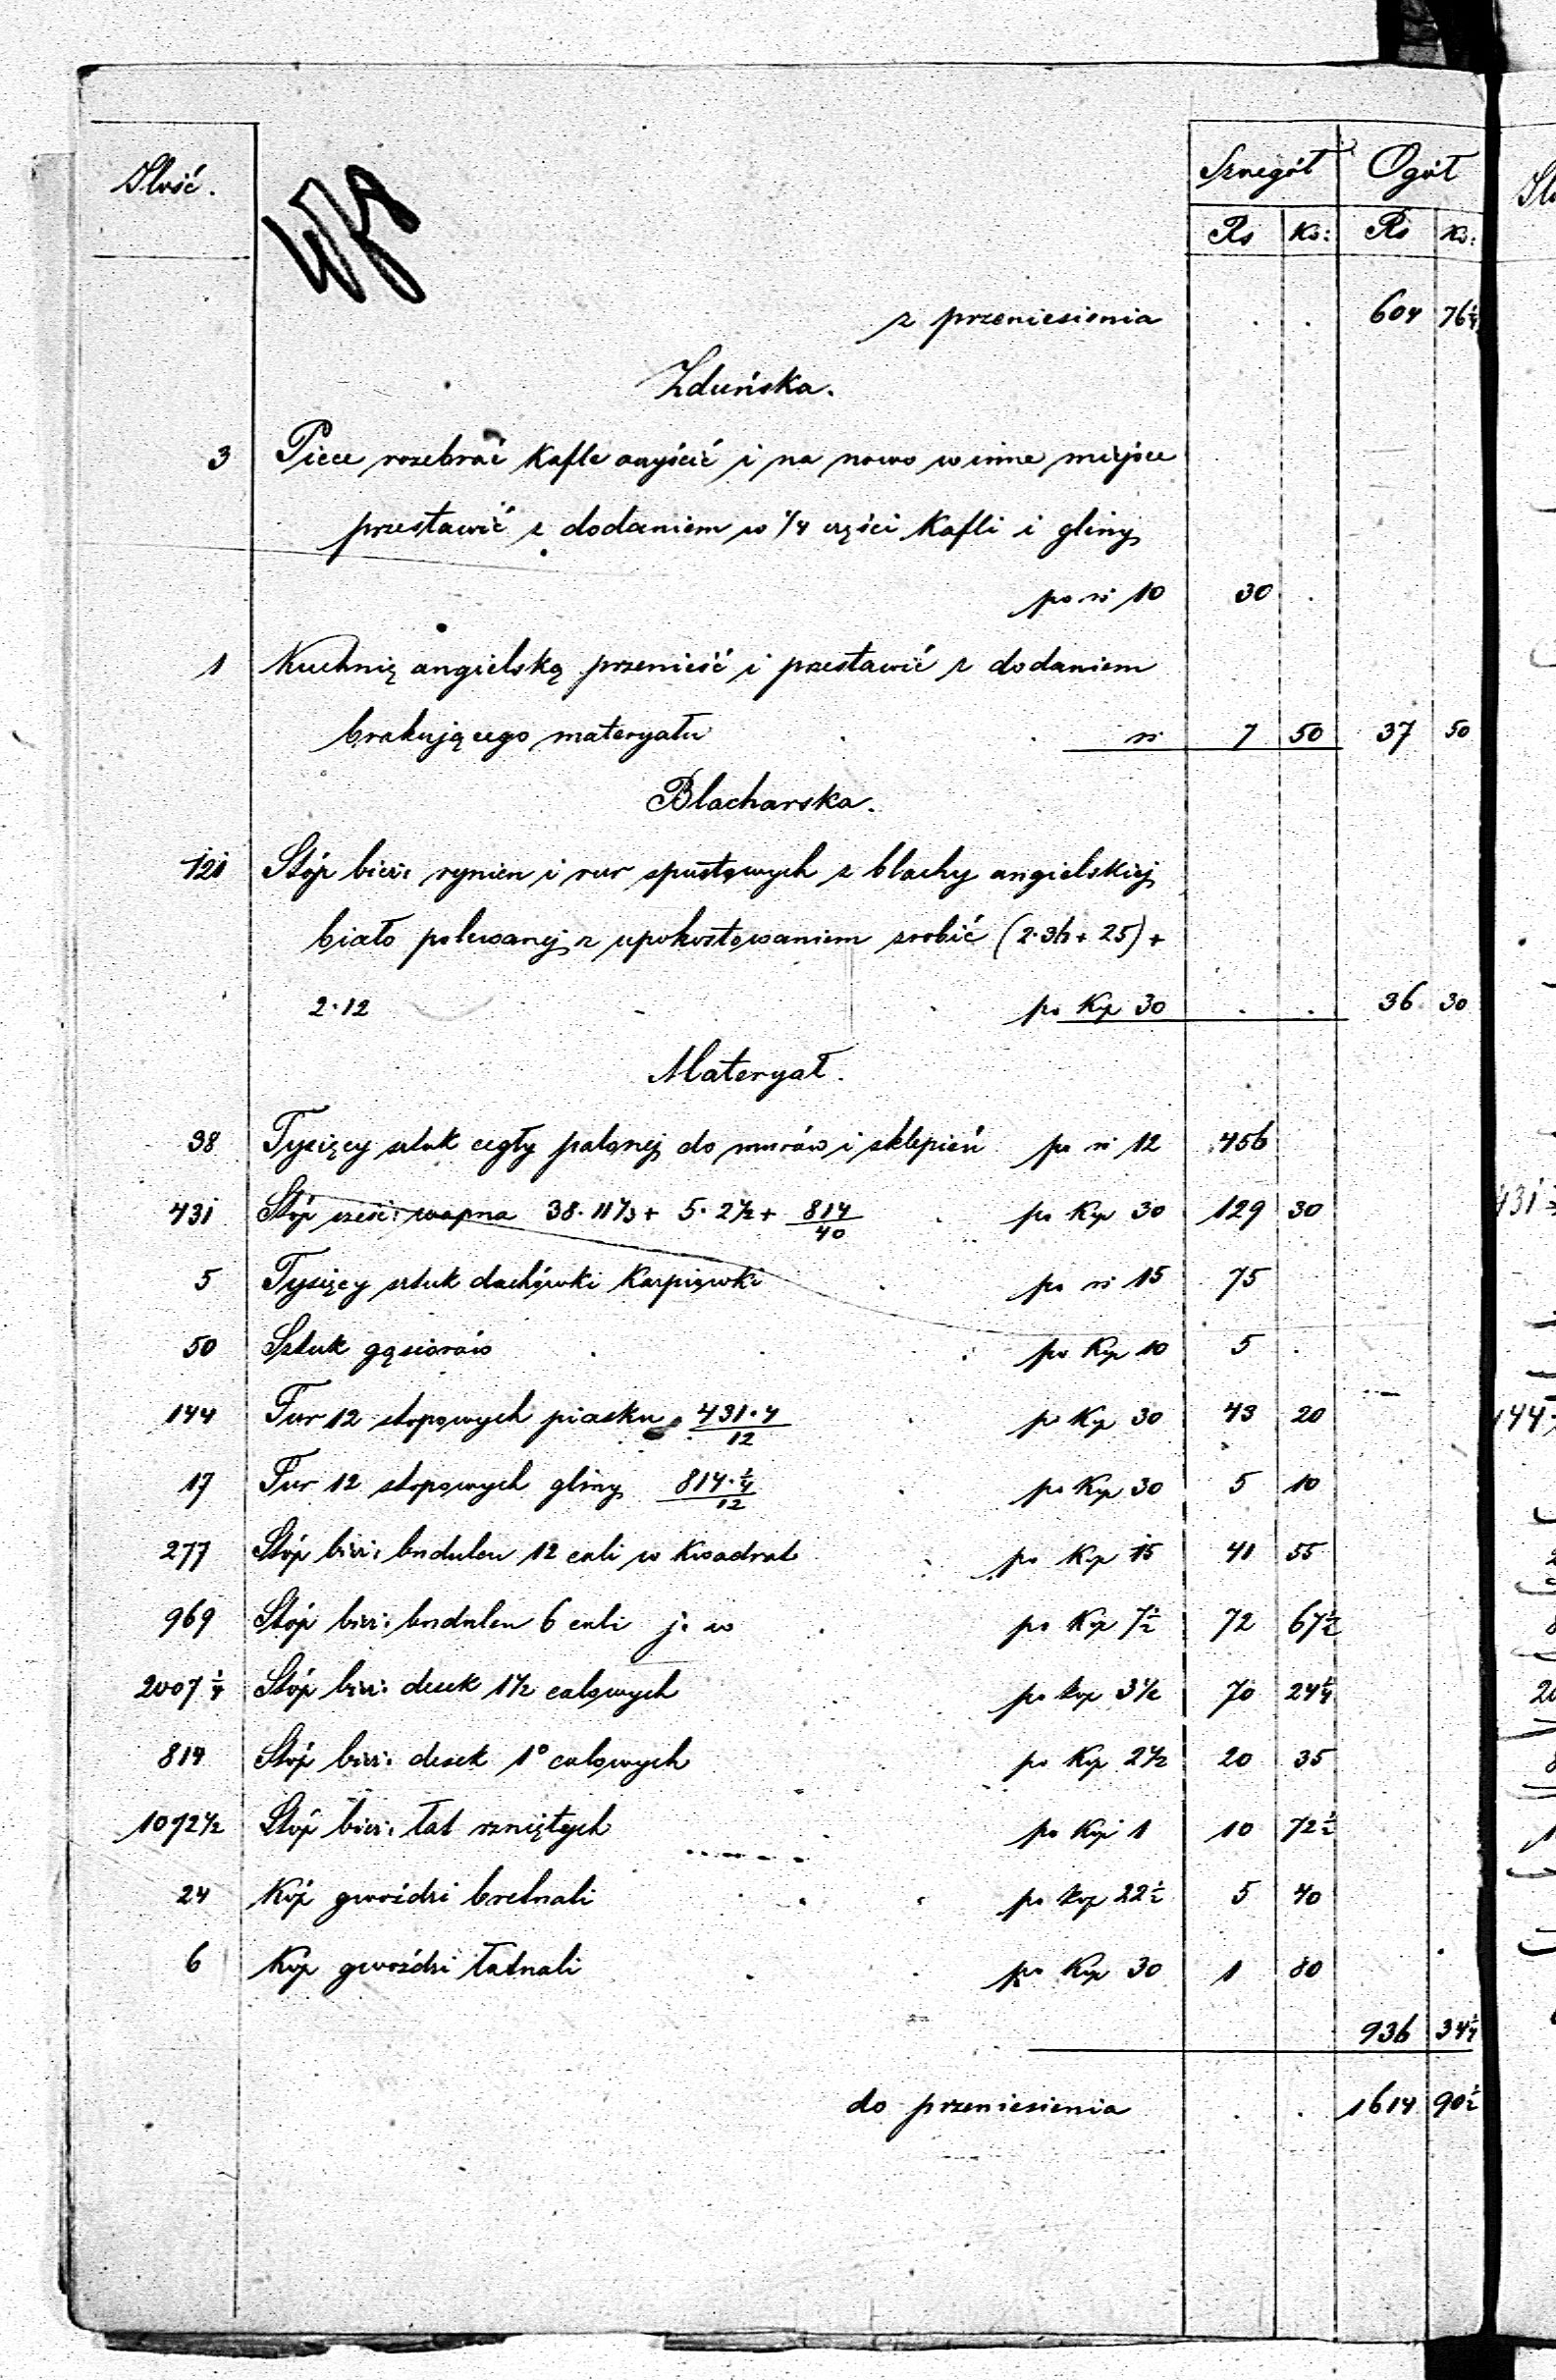 Ilość.
Szczegół Ogół
Rs Ks: Rs Ks:
z przeniesienia . . 604 76 1/4
Zduńska.
3 Piece rozebrać kafle oczyścić i na nowo w inne miejsce
przestawić z dodaniem w 1/4 części kafli i gliny
po rs 10 30 .
1 Kuchnię angielską przenieść i przestawić z dodaniem
brakującego materyału rs 7 50 37 50
Blacharska.
121 Stóp bież: rynien i rur spustowych z blachy angielskiej
biało polewanej z upokostowaniem zrobić (2·36 + 25) +
2·12 po Kop 30 . . 36 30
Materyał.
38 Tysięcy sztuk cegły palonej do murów i sklepień po rs 12 456
431 Stóp sześc: wapna 38·11 1/3 + 5·2 1/2 + 814/40 po Kop 30 129 30
5 Tysięcy sztuk dachówki Karpiówki po rs 15 75
50 Sztuk gąsiorów po Kop 10 5 .
144 Fur 12 stopowych piasku 431·4/12 po Kop 30 43 20
17 Fur 12 stopowych gliny 814·1/4/12 po Kop 30 5 10
277 Stóp bież: budulcu 12 cali w kwadrat po Kop 15 41 55
969 Stóp bież: budulcu 6 cali j. w po Kop 7 1/2 72 67 1/2
2007 1/4 Stóp bież: desek 1 1/2 calowych po kop 3 1/2 70 24 1/4
814 Stóp bież: desek 1° calowych po Kop 2 1/2 20 35
1072 1/2 Stóp bież: łat rzniętych po Kop 1 10 72 1/2
24 Kóp gwoździ bretnali po kop 22 1/2 5 40
6 Kop gwoździ łatnali po Kop 30 1 80
936 34 1/4
do przeniesienia . . 1614 90 1/2